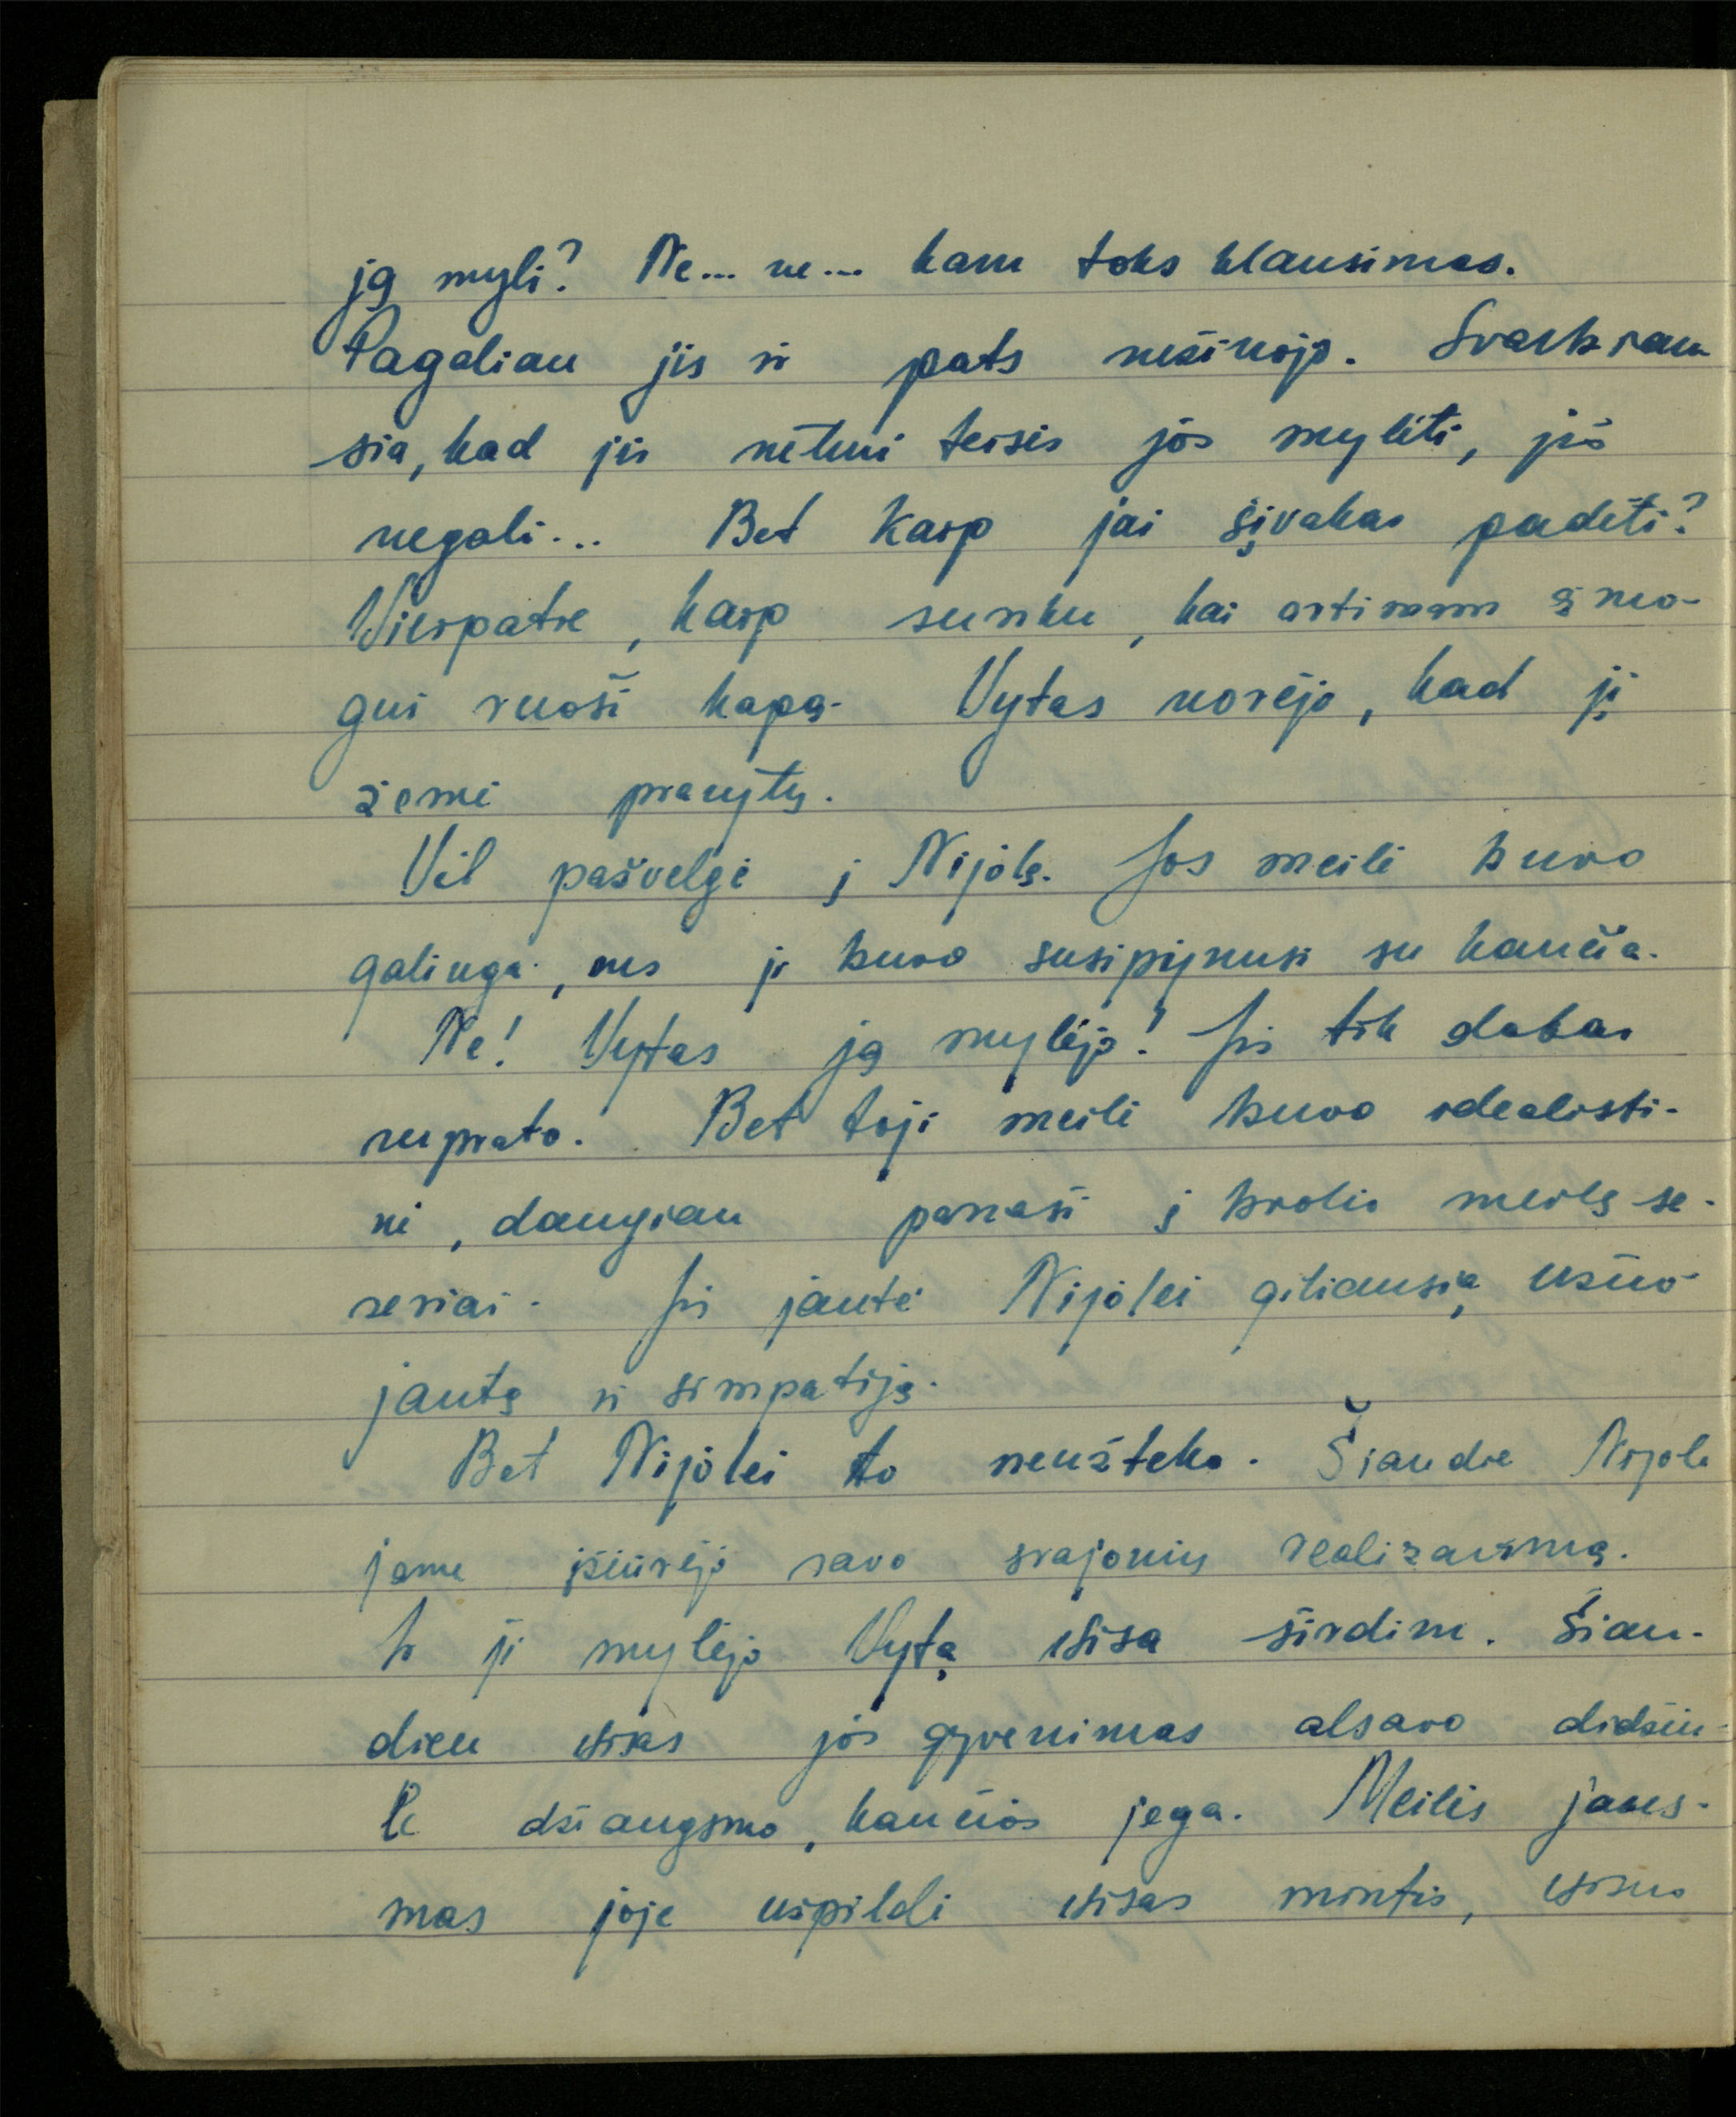 ją myli? Ne... ne... kam toks klausimas.
Pagaliau jis ir pats nežinojo. Svarbiau-
sia, kad jis neturi teisės jos mylėti, jis
negali... Bet kaip jai šįvakar padėti?
Viešpatie, kaip sunku, kai artimam žmo-
gui ruoši kapą. Vytas norėjo, kad jį
žemė prarytų.
Vėl pažvelgė į Nijolę. Jos meilė buvo
galinga, nes ji buvo susipynusi su kančia.
Ne! Vytas ją mylėjo! Jis tik dabar
suprato. Bet toji meilė buvo idealisti-
nė, daugiau panaši į brolio meilę se-
seriai. Jis jautė Nijolei giliausią užuo-
jautą ir simpatiją.
Bet Nijolei to neužteko. Šiandie Nijolė
jame įžiūrėjo savo svajonių realizavimą.
Ir ji mylėjo Vytą visa širdim. Šian-
dien visas jos gyvenimas alsavo didžiu-
le džiaugsmo, kančios jėga. Meilės jaus-
mas joje užpildė visas mintis, visus